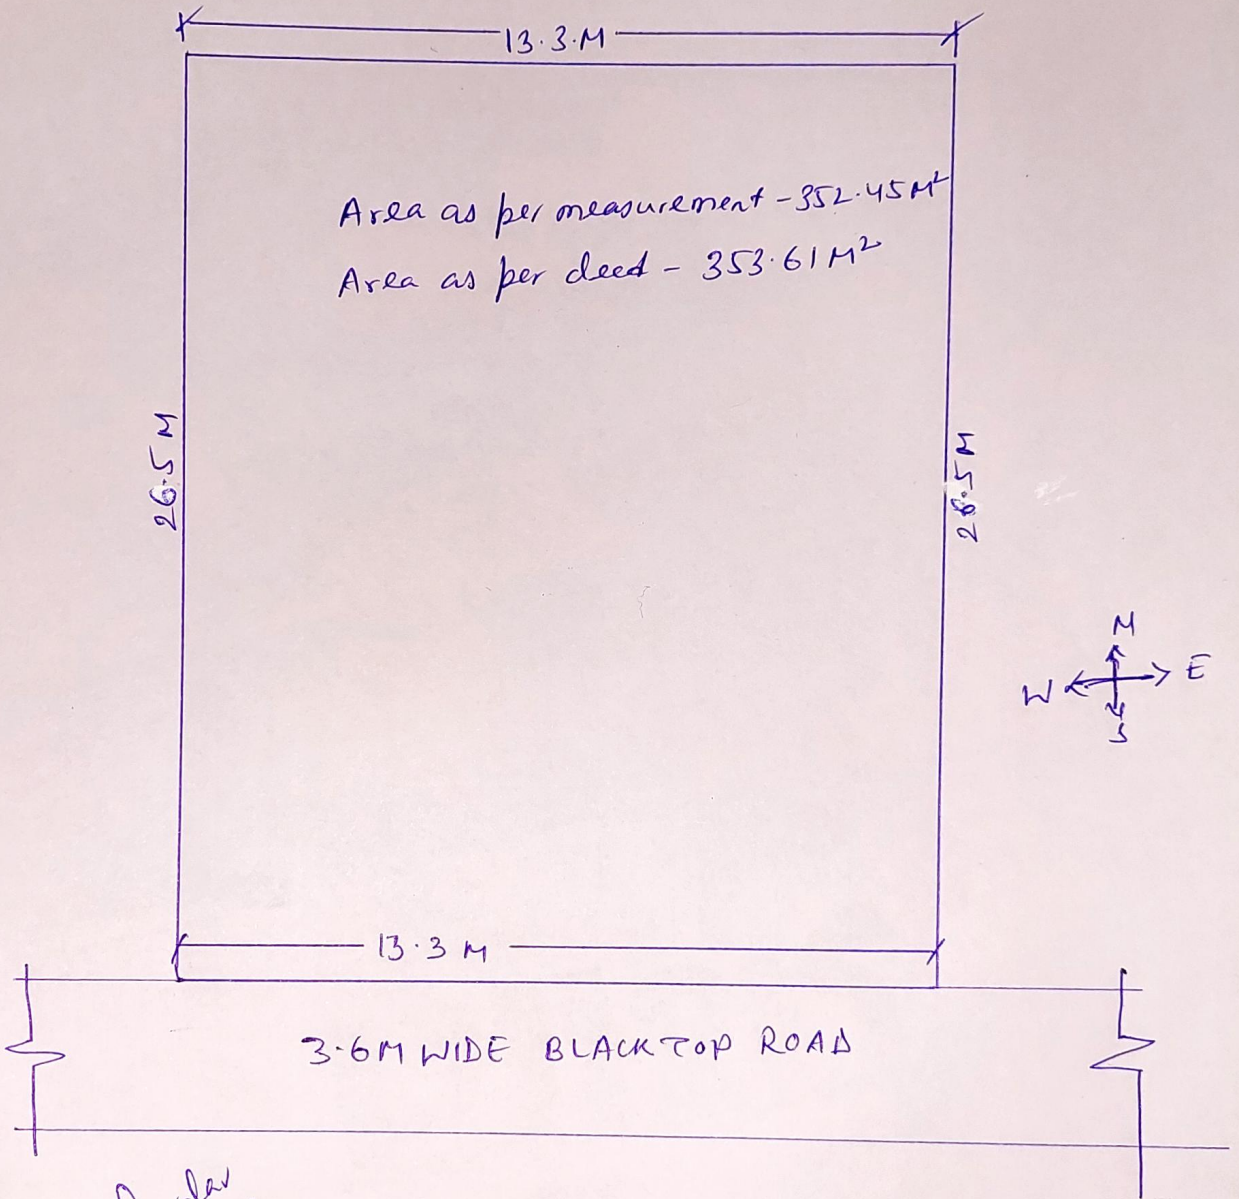 13.3.M
Area as per measurement - 352.45 M²
Area as per deed - 353.61 M²
26.5 M
26.5 M
N
W E
S
13.3 M
3.6M WIDE BLACK TOP ROAD